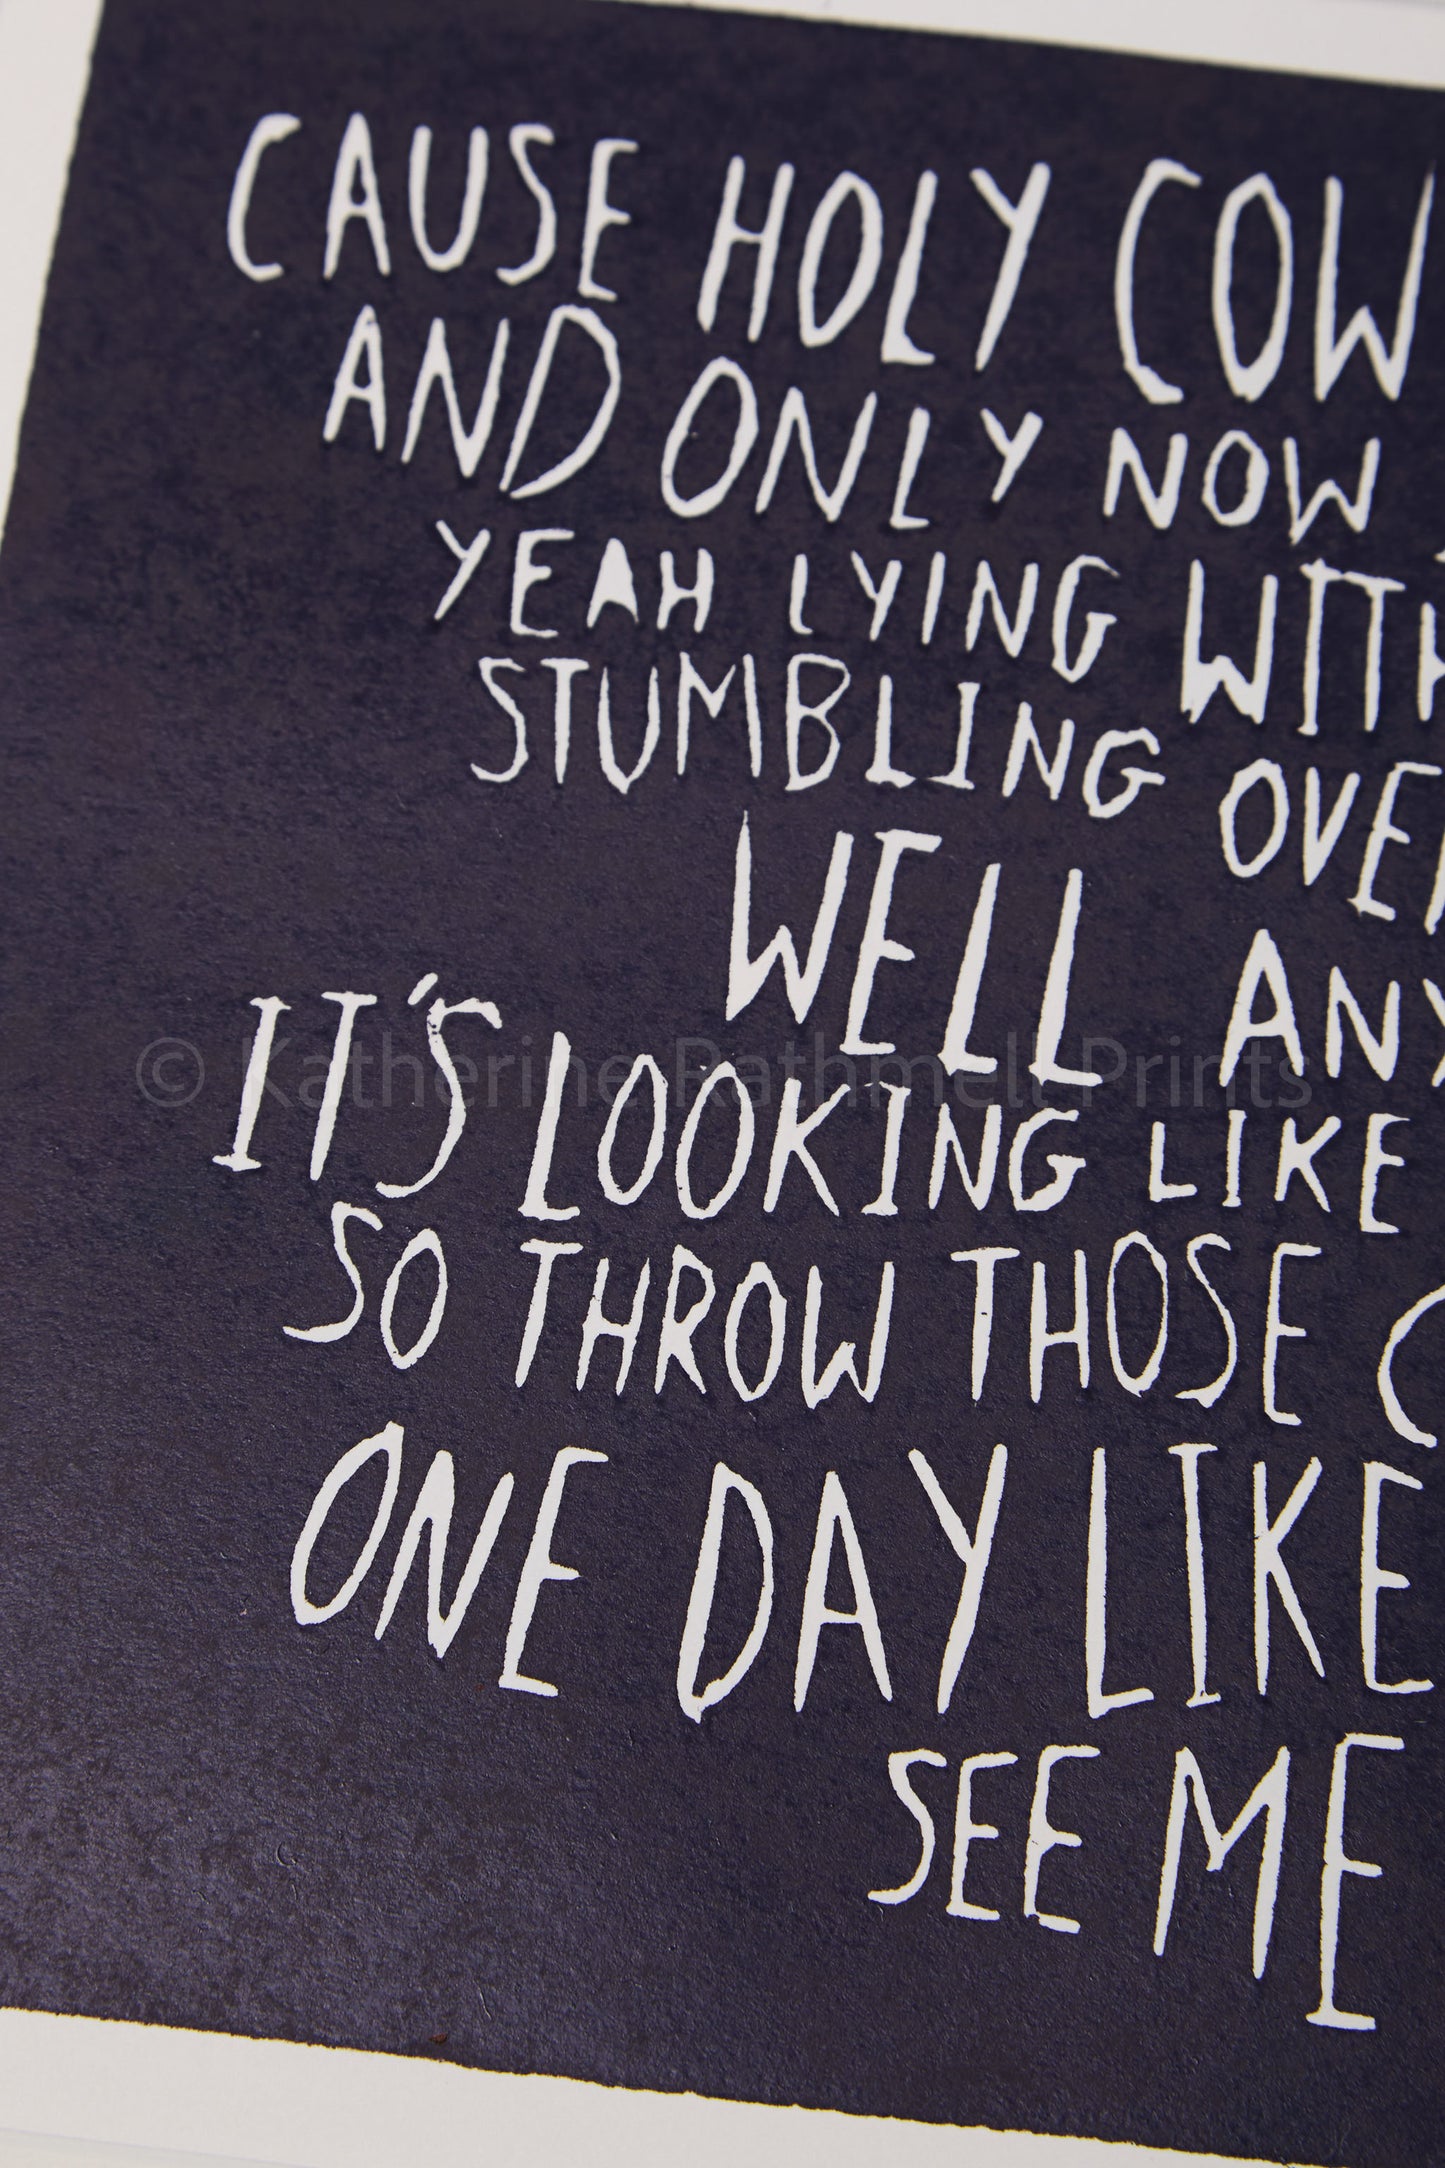 CAUSE HOLY COW
AND ONLY NOW
YEAH LYING WITH
STUMBLING OVER
WELL ANY
IT'S LOOKING LIKE
© Katherine Rathmell Prints
SO THROW THOSE C
ONE DAY LIKE
SEE ME